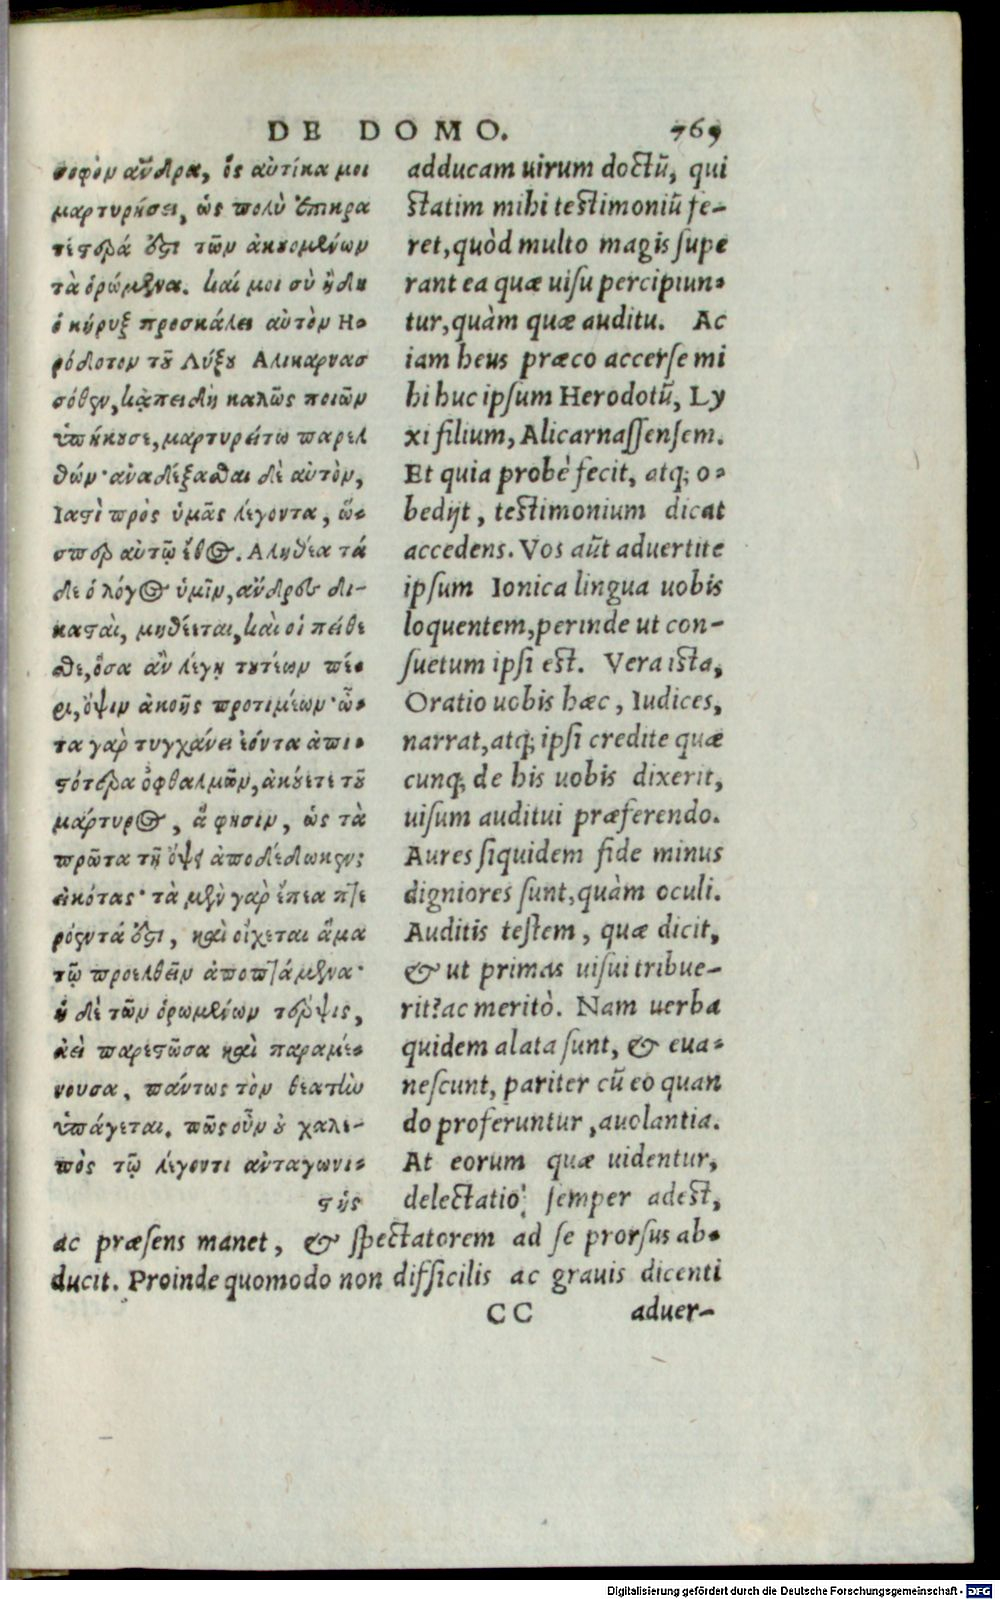 DE DOMO. 769
σοφὸν ἄνδρα, ὃς αὐτίκα μοι
μαρτυρήσει, ὡς πολὺ ἐπικρα
τέστερά ἐστι τῶν ἀκουομένων
τὰ ὁρώμενα. καί μοι σὺ ἤδη
ὁ κήρυξ προσκάλει αὐτὸν Ηρ
ρόδοτον τοῦ Λύξου Αλικαρνασ
σόθεν, κἀπειδὴ καλῶς ποιῶν
ὑπήκουσε, μαρτυρείτω παρελ
θών· ἀναδέξασθαι δὲ αὐτὸν,
Ιαστὶ πρὸς ὑμᾶς λέγοντα, ὥσ
σπερ αὐτῷ ἔθος. Αληθέα τά
δε ὁ λόγος ὑμῖν, ἄνδρες δι-
κασταὶ, μυθέεται, καὶ οἱ πείθε
σθε, ὅσα ἂν λέγῃ τουτέων πέ-
ρι, ὄψιν ἀκοῆς προτιμέων· ὦ-
τα γὰρ τυγχάνει ἐόντα ἀπι-
στότερα ὀφθαλμῶν, ἀκούετε τοῦ
μάρτυρος, ἅ φησιν, ὡς τὰ
πρῶτα τῇ ὄψει ἀποδέδωκεν;
εἰκότως· τὰ μὲν γὰρ ἔπεα πτε
ρόεντά ἐστι, καὶ οἴχεται ἅμα
τῷ προελθεῖν ἀποπτάμενα·
ἡ δὲ τῶν ὁρωμένων τέρψις,
ἀεὶ παρεστῶσα καὶ παραμέ-
νουσα, πάντως τὸν θεατὴν
ὑπάγεται. πῶς οὖν οὐ χαλε-
πὸς τῷ λέγοντι ἀνταγωνι-
στής
adducam uirum doctū, qui
statim mihi testimoniū fe-
ret, quòd multo magis supe
rant ea quæ uisu percipiun-
tur, quàm quæ auditu. Ac
iam heus præco accerse mi
hi huc ipsum Herodotū, Ly
xi filium, Alicarnassensem.
Et quia probè fecit, atq; o-
bedijt, testimonium dicat
accedens. Vos aūt aduertite
ipsum Ionica lingua uobis
loquentem, perinde ut con-
suetum ipsi est. Vera ista,
Oratio uobis hæc, Iudices,
narrat, atq; ipsi credite quæ
cunq; de his uobis dixerit,
uisum auditui præferendo.
Aures siquidem fide minus
digniores sunt, quàm oculi.
Auditis testem, quæ dicit,
& ut primas uisui tribue-
rit? ac meritò. Nam uerba
quidem alata sunt, & eua-
nescunt, pariter cū eo quan
do proferuntur, auolantia.
At eorum quæ uidentur,
delectatio semper adest,
ac præsens manet, & spectatorem ad se prorsus ab-
ducit. Proinde quomodo non difficilis ac grauis dicenti
CC aduer-
Digitalisierung gefördert durch die Deutsche Forschungsgemeinschaft - DFG